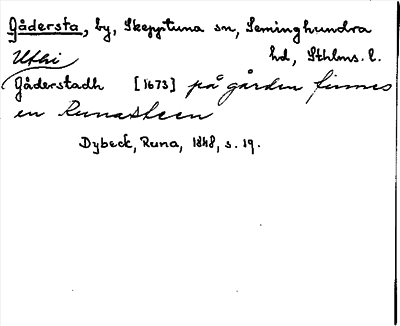 Gådersta, by, Skepptuna sn, Seminghundra
hd, Sthlms. l.
Uthi
Gåderstadh [1673] på gården finnes
en Runasteen
Dybeck, Runa, 1848, s. 19.